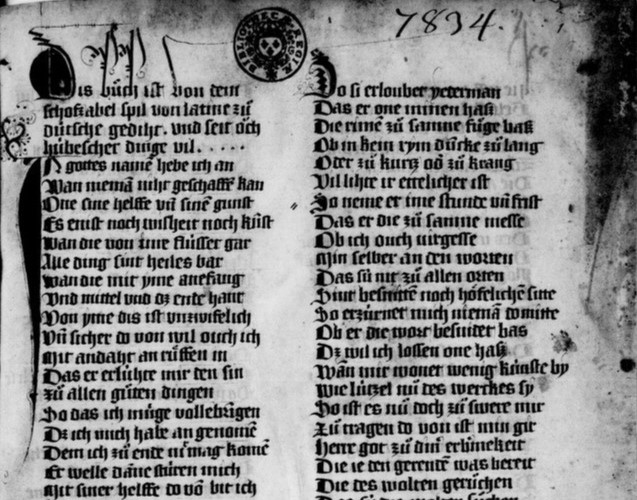 7834.
BIBLIOTHECÆ REGIÆ
Dis bůch ist von dem
schofzabel spil von latine zů
dütsche gediht. vnd seit öch
hübescher dinge vil.....
In gottes namē hebe ich an
Wan niemā niht geschaffē kan
One sine helffe vn̄ sinē gunst
Es enist noch wisheit noch kūst
Wan die von ime flüsser gar
Alle ding sint heiles bar
Wan die mit yme anefang
Vnd mittel vnd dz ende hant
Von yme dis ist vnzwifelich
Vn̄ sicher do von wil ouch ich
Mit andaht an rüffen in
Das er erlühte mir den sin
Zů allen gůten dingen
So das ich müge vollebringen
Dz ich mich habe an genomē
Dem ich zů ende nūt mag komē
Er welle dāne stüren mich
Mit siner helffe do vō bit ich
Do si erlouber yederman
Das er one minen hasz
Die rimē zů samne fůge basz
Ob in kein rym duncke zů lang
Oder zů kurtz od zů krang
Vil lihte ir ettelicher ist
So neme er ime stunde vn̄ frist
Das er die zů samne messe
Ob ich ouch ūrgesse
Min selber an den worten
Das sü nit zů allen orten
Sint besnittē noch höfelichē sitte
So erzürnet mich niemā domitte
Ob er die wort besnidet bas
Dz wil ich lossen one hasz
Wān mir wonet wenig künste by
Wie lützel nū des werckes sy
So ist es nū doch zů swere mir
Zů tragen do von ist min gir
Herre got zů diner erbinekeit
Die ie den gerendē was bereit
Die des wolten gerůchen